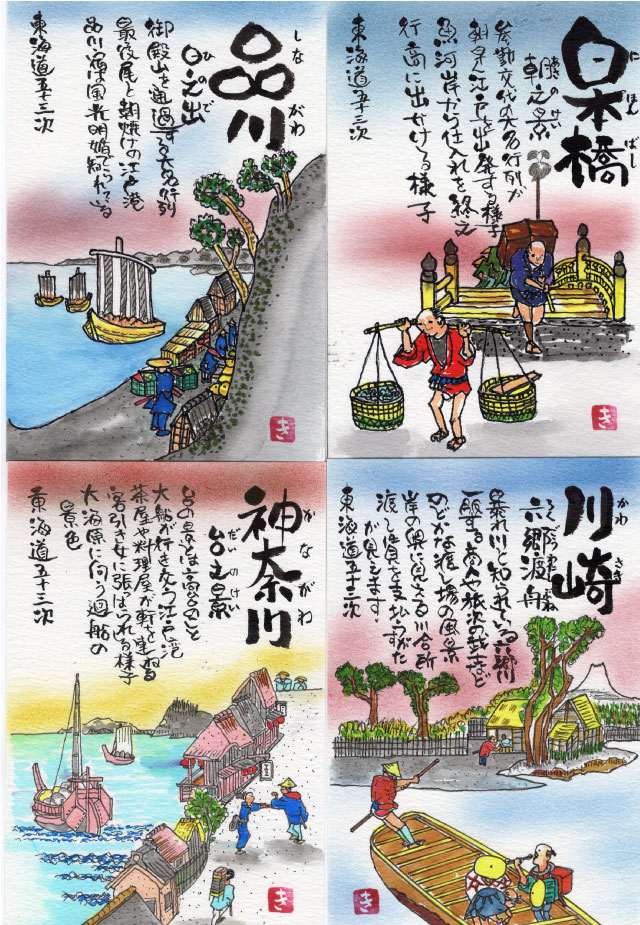 日本橋
にほんばし
朝之景
参勤交代の大名行列が
江戸を出発する様子
魚河岸から仕入れを終え
行商に出かける様子
東海道五十三次
き
品川
しながわ
日之出
ひので
御殿山を通過する大名行列
最後尾と朝焼けの江戸港
風光明媚
東海道五十三次
き
川崎
かわさき
六郷渡舟
暴れ川と知られている六郷川
一服する商人や旅次の武士など
のどかな渡し場の風景
岸の奥に見える川会所
渡し賃を支払うすがた
が見えます.
東海道五十三次
き
神奈川
かながわ
台之景
だいのけい
台の景とは高台のこと
大船が行き交う江戸湾
茶屋や料理屋が軒を連ねる
客引き女に張っぱられる様子
大海原に向う廻船の
景色
東海道五十三次
き